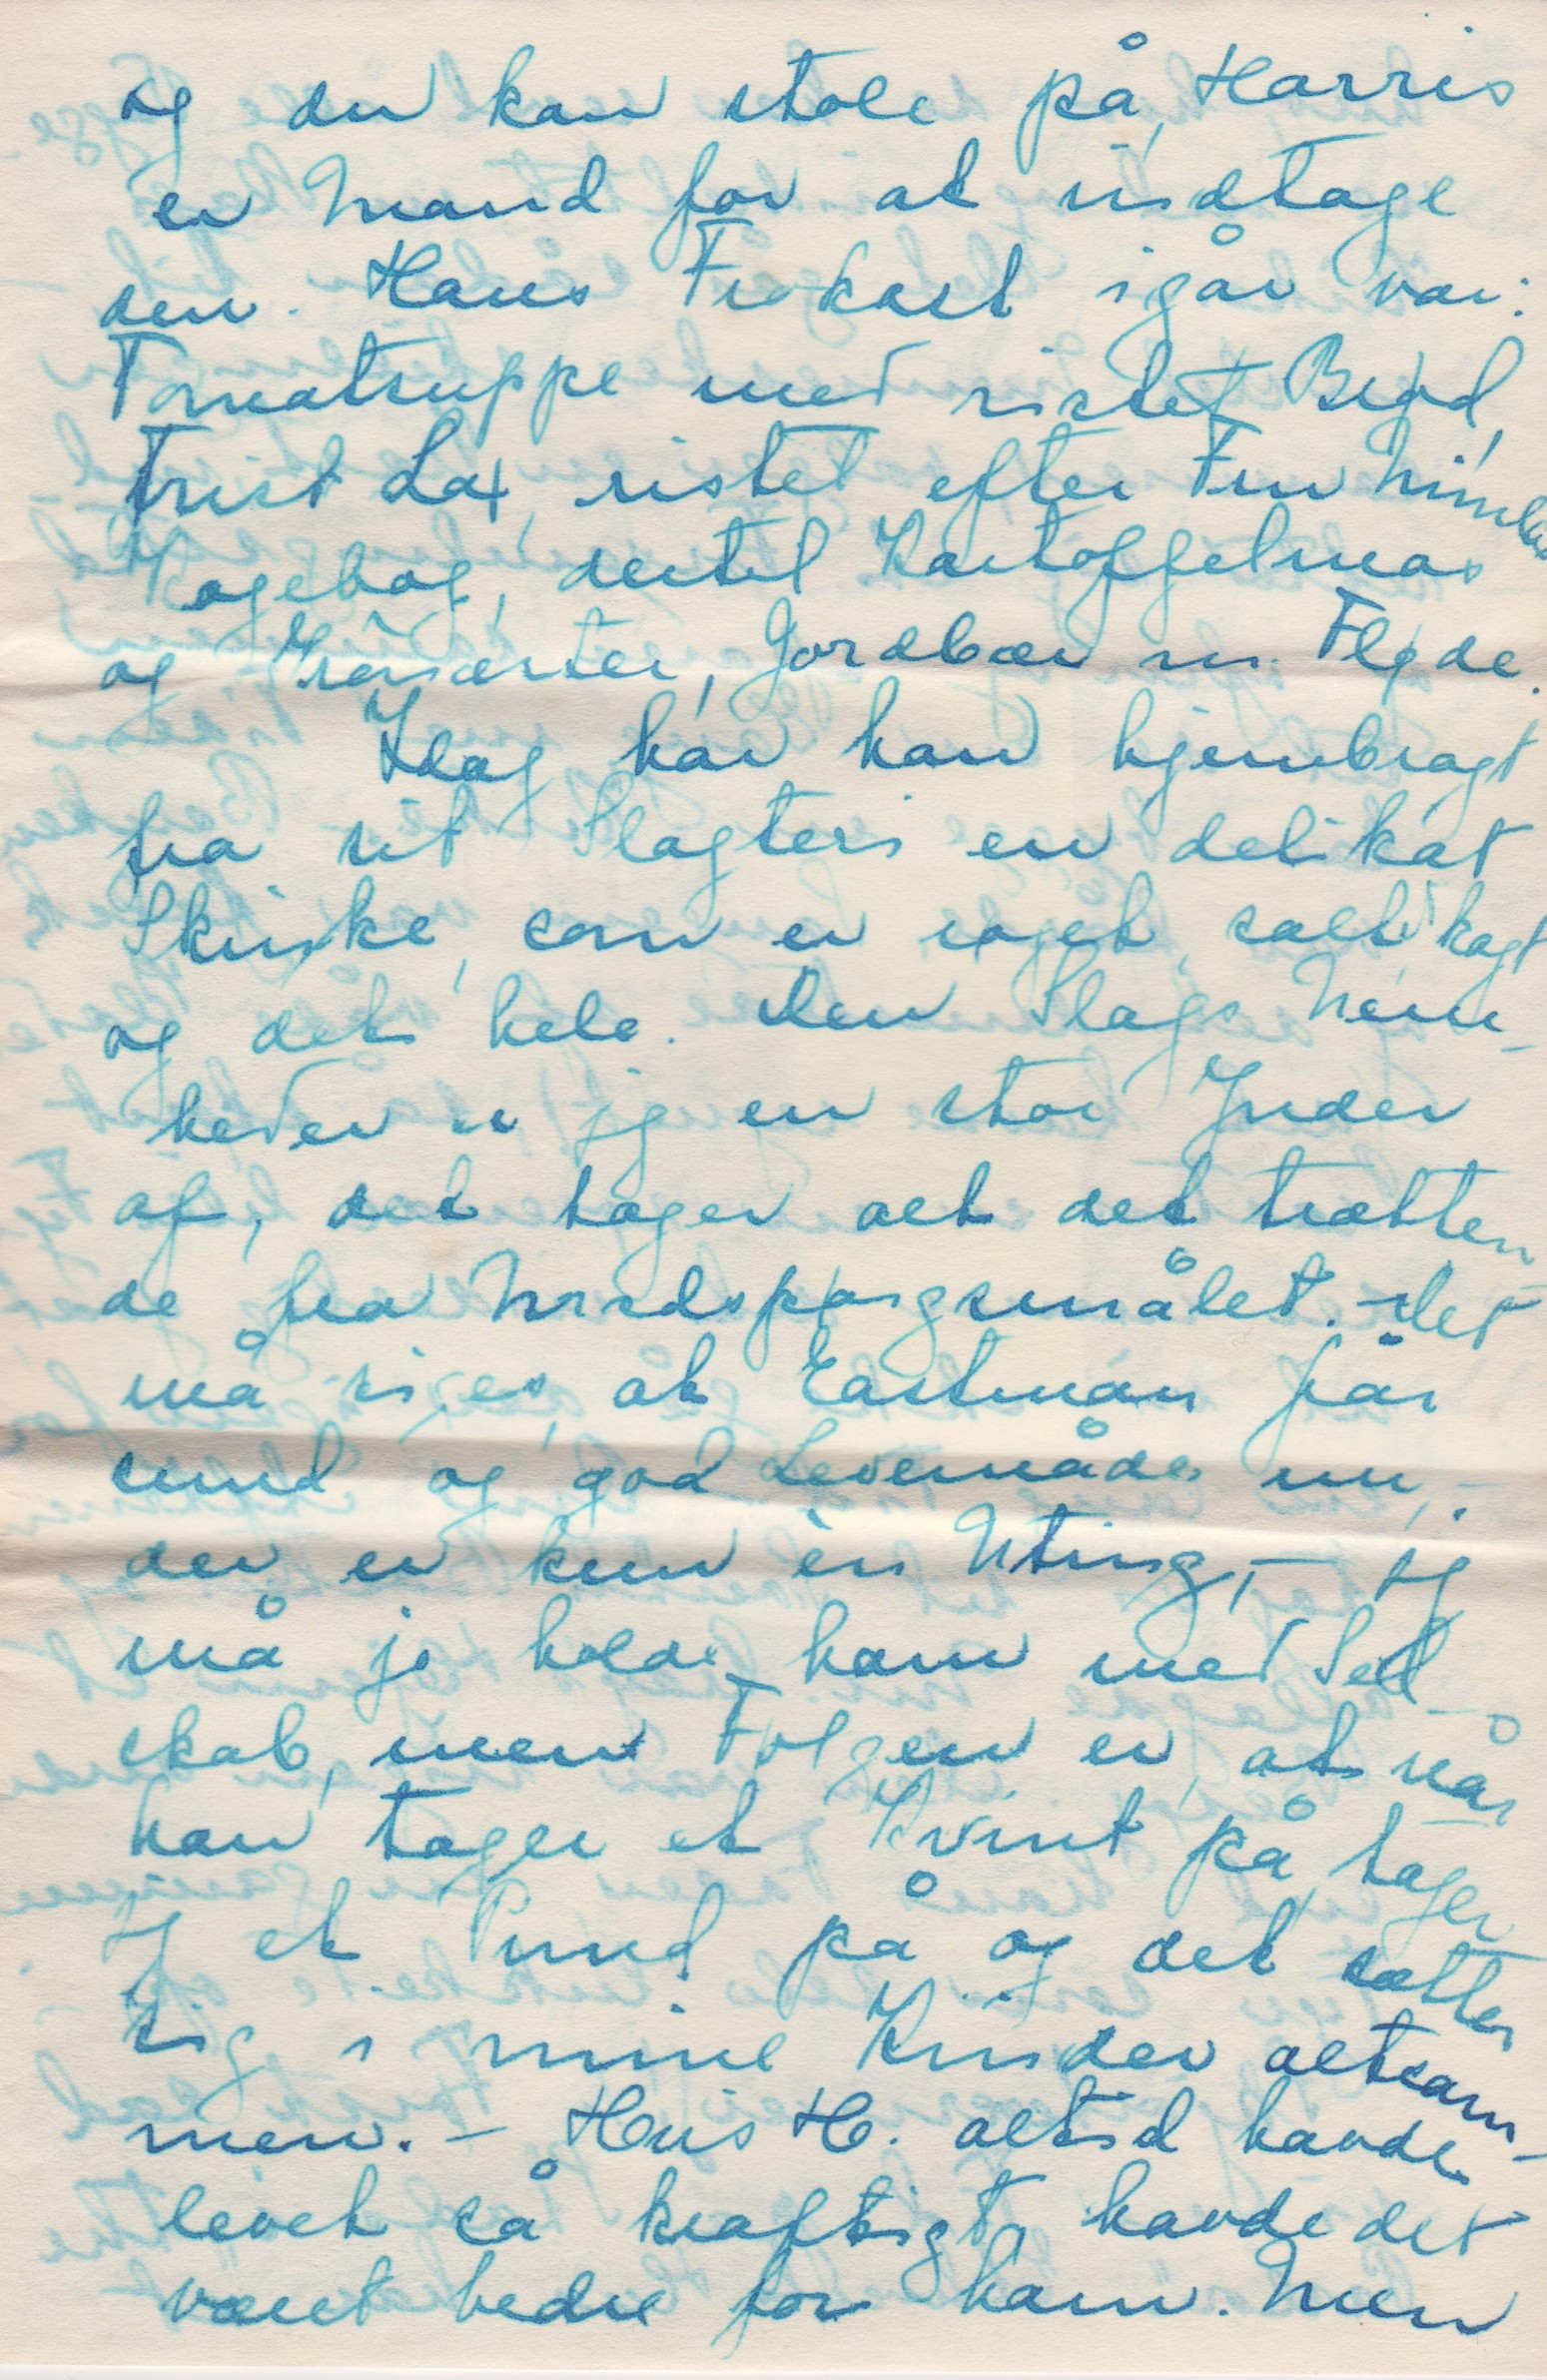 og du kan stole på, Harris
er Mand for at indtage
den. Hans Frokost igår var:
Tomatsuppe med ristet Brød,
Frisk Lax, ristet efter Fru Nimbs
Kogebog, dertil Kartoffelmos
og Grønærter, Jordbær m. Fløde.
Idag har han hjembragt
fra sit Slagteri en delikat
Skinke, som er røget, saltet, kogt
og det hele. Den Slags Nem-
heder er jeg en stor Ynder
af, det tager alt det trætten-
de fra Madspørgsmålet. - Det
må siges, at Eastman får
sund og god Levemåde nu, -
der er kun èn Ulting, - jeg
må jo holde ham med Sel-
skab, men Følgen er, at når
han tager et Kvint på, tager
jeg et Pund på og det sætter
sig i mine Kinder altsam-
men. - Hvis H. altid havde
levet så kraftigt, havde det
været bedre for ham. Men